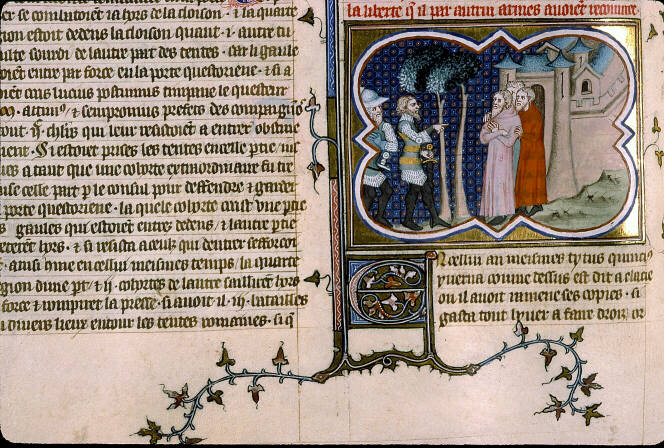 cr se combatoiēt la hors de la cloison . ⁊ la quarte
gion estoit dedens la cloison quant . i . autre tu
ulte sourdi de lautre part des tentes . car li gaule
oiēt entre par force en la porte questoriene . ⁊ si a
oiēt cius lucius postumius timpane le questeur
⁊ sempronius prefets des compaignōs
chlrs qui leur resistoiēt a entrer
uient . Si estoiēt prises les tentes en celle ptie
ues a tant que une cohorte extraordinaire fu
use celle part p le consul pour deffendre ⁊ garder
porte questoriene . la quele cohorte une ptie
s gaulois qui estoiēt entre dedens ⁊ lautre ptie
hors . ⁊ si resista a ceulz qui dentrer
. ainsi en icellui meismes temps / la quarte
gion dune pt / ⁊ ij cohortes de lautre saillirēt hors
force ⁊ rompirēt la presse . si avoit il . iij . batailles
n divers lieux entour les tentes romaines . si q̄
la liberte q̄ il par autrui armes avoiēt recouvree .
En cellui an meismes tytus quinci⁹
yverna comme dessus est dit a elacie
ou il avoit mene ses copies . si
gasta tout lyver a faire droiz / or